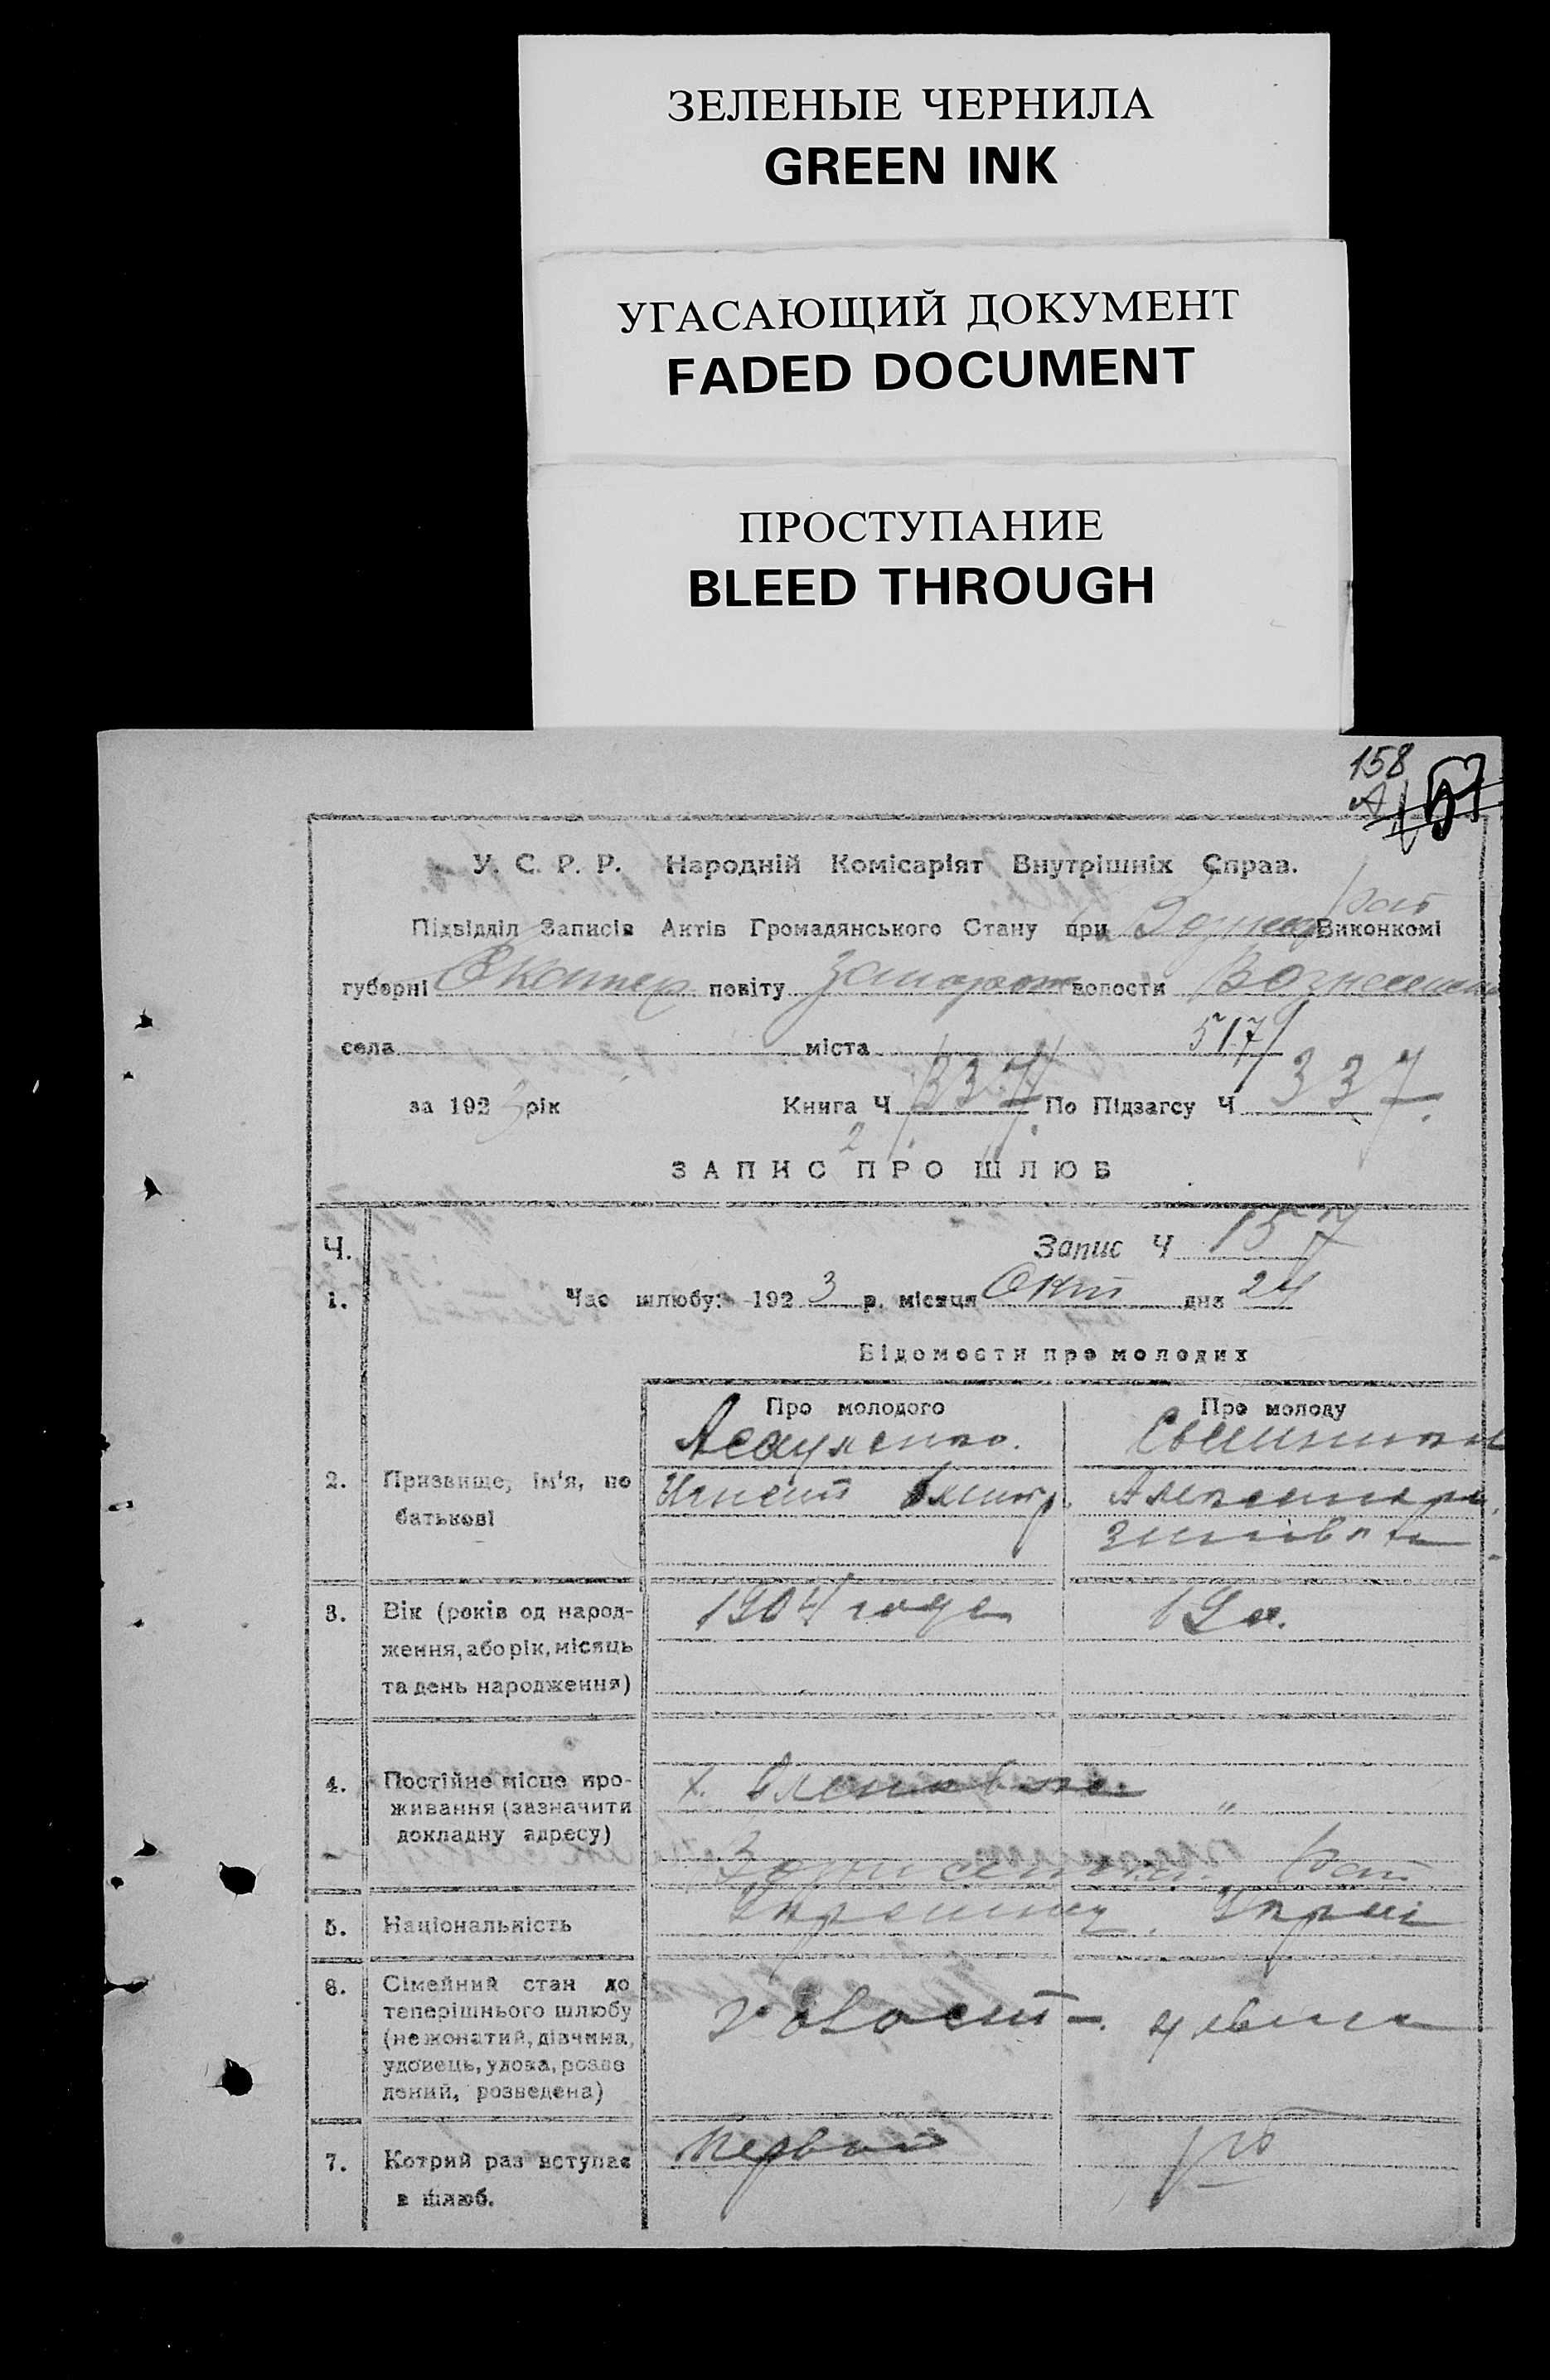 ЗЕЛЕНЫЕ ЧЕРНИЛА
GREEN INK
УГАСАЮЩИЙ ДОКУМЕНТ
FADED DOCUMENT
ПРОСТУПАНИЕ
BLEED THROUGH
158
У. С. Р. Р. Народній Комісаріят Внутрішніх Справ.
Підвідділ Записів Актів Громадянського Стану при Виконкомі
губерні Екатер повіту Запорож волости Вознесенск
села міста 517
за 1923 рік Книга Ч 337 По Підзагсу Ч 337.
2
ЗАПИС ПРО ШЛЮБ
Ч. Запис Ч 157
1. Час шлюбу: 1923 р. місяця Окт дня 24
Відомости про молодих
Про молодого Про молоду
2. Призвище, ім'я, по
батькові
3. Вік (років од народ- 1904 года 19 л.
ження, або рік, місяць
та день народження)
4. Постійне місце про- х. "
живання (зазначити
докладну адресу)
5. Національність Украинец. Украї
6. Сімейний стан до
теперішнього шлюбу
(не жонатий, дівчина, холост -. девица
удовець, удова, розве
дений, розведена)
7. Котрий раз вступає Первый
в шлюб.